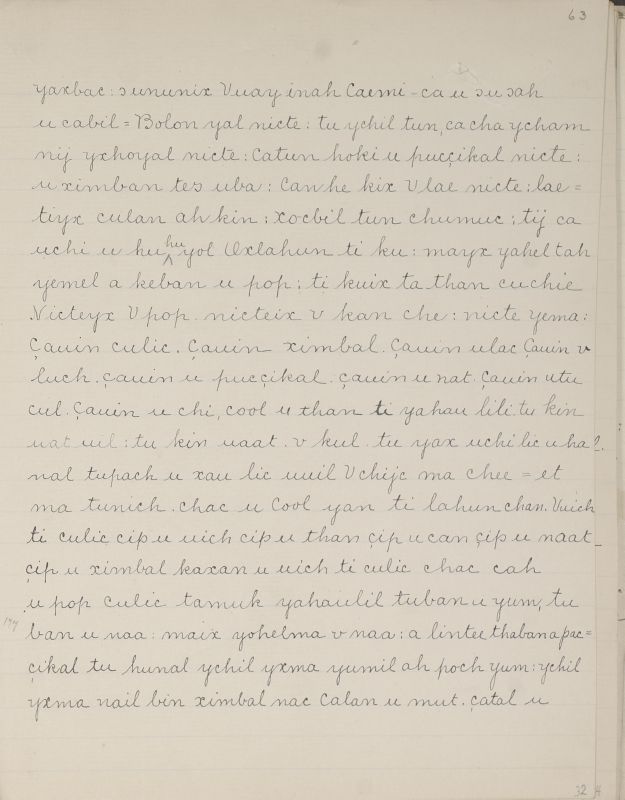 63
yaxbac : sununix Vuay inah Caemi - ca u su sah
u cabil = Bolon yal nicte : tu ychil tun, ca cha ycham
nij yxhoyal nicte : Catun hoki u pucçikal nicte :
u ximban tes uba : Can he kix V lae nicte : lae =
tiyx culan ah kin : xocbil tun chumuc : tij ca
uchi u ku hu yol Oxlahun ti ku : mayx yahel tah
yemel a keban u pop : ti kuix ta than cuchie
Nicteyx V pop . nicteix v kan che : nicte yema :
Çauin culic . Çauin ximbal . Çauin ulac Çauin v
luch . çauin u pucçikal . çauin u nat . Çauin utu
cul . Çauin u chi , cool u than ti yahau lili . tu kin
uat uil : tu kin uaat . v kul . tu yax uchi lic u ha?.
nal tu pach u xau lic uuil V chijc ma chee = et
ma tunich . chac u Cool yan ti lahun chan . Vuich
ti culic cip u uich cip u than çip u can çip u naat_
çip u ximbal kaxan u uich ti culic chac cah
u pop culic tamuk yahaulil tuban u yum, tu
ban u naa : maix yohelma v naa : a lintee thabana pac=
çikal tu hunal ychil yxma yumil ah poch yum : ychil
yxma nail bin ximbal nac Calan u mut . çatal u
32